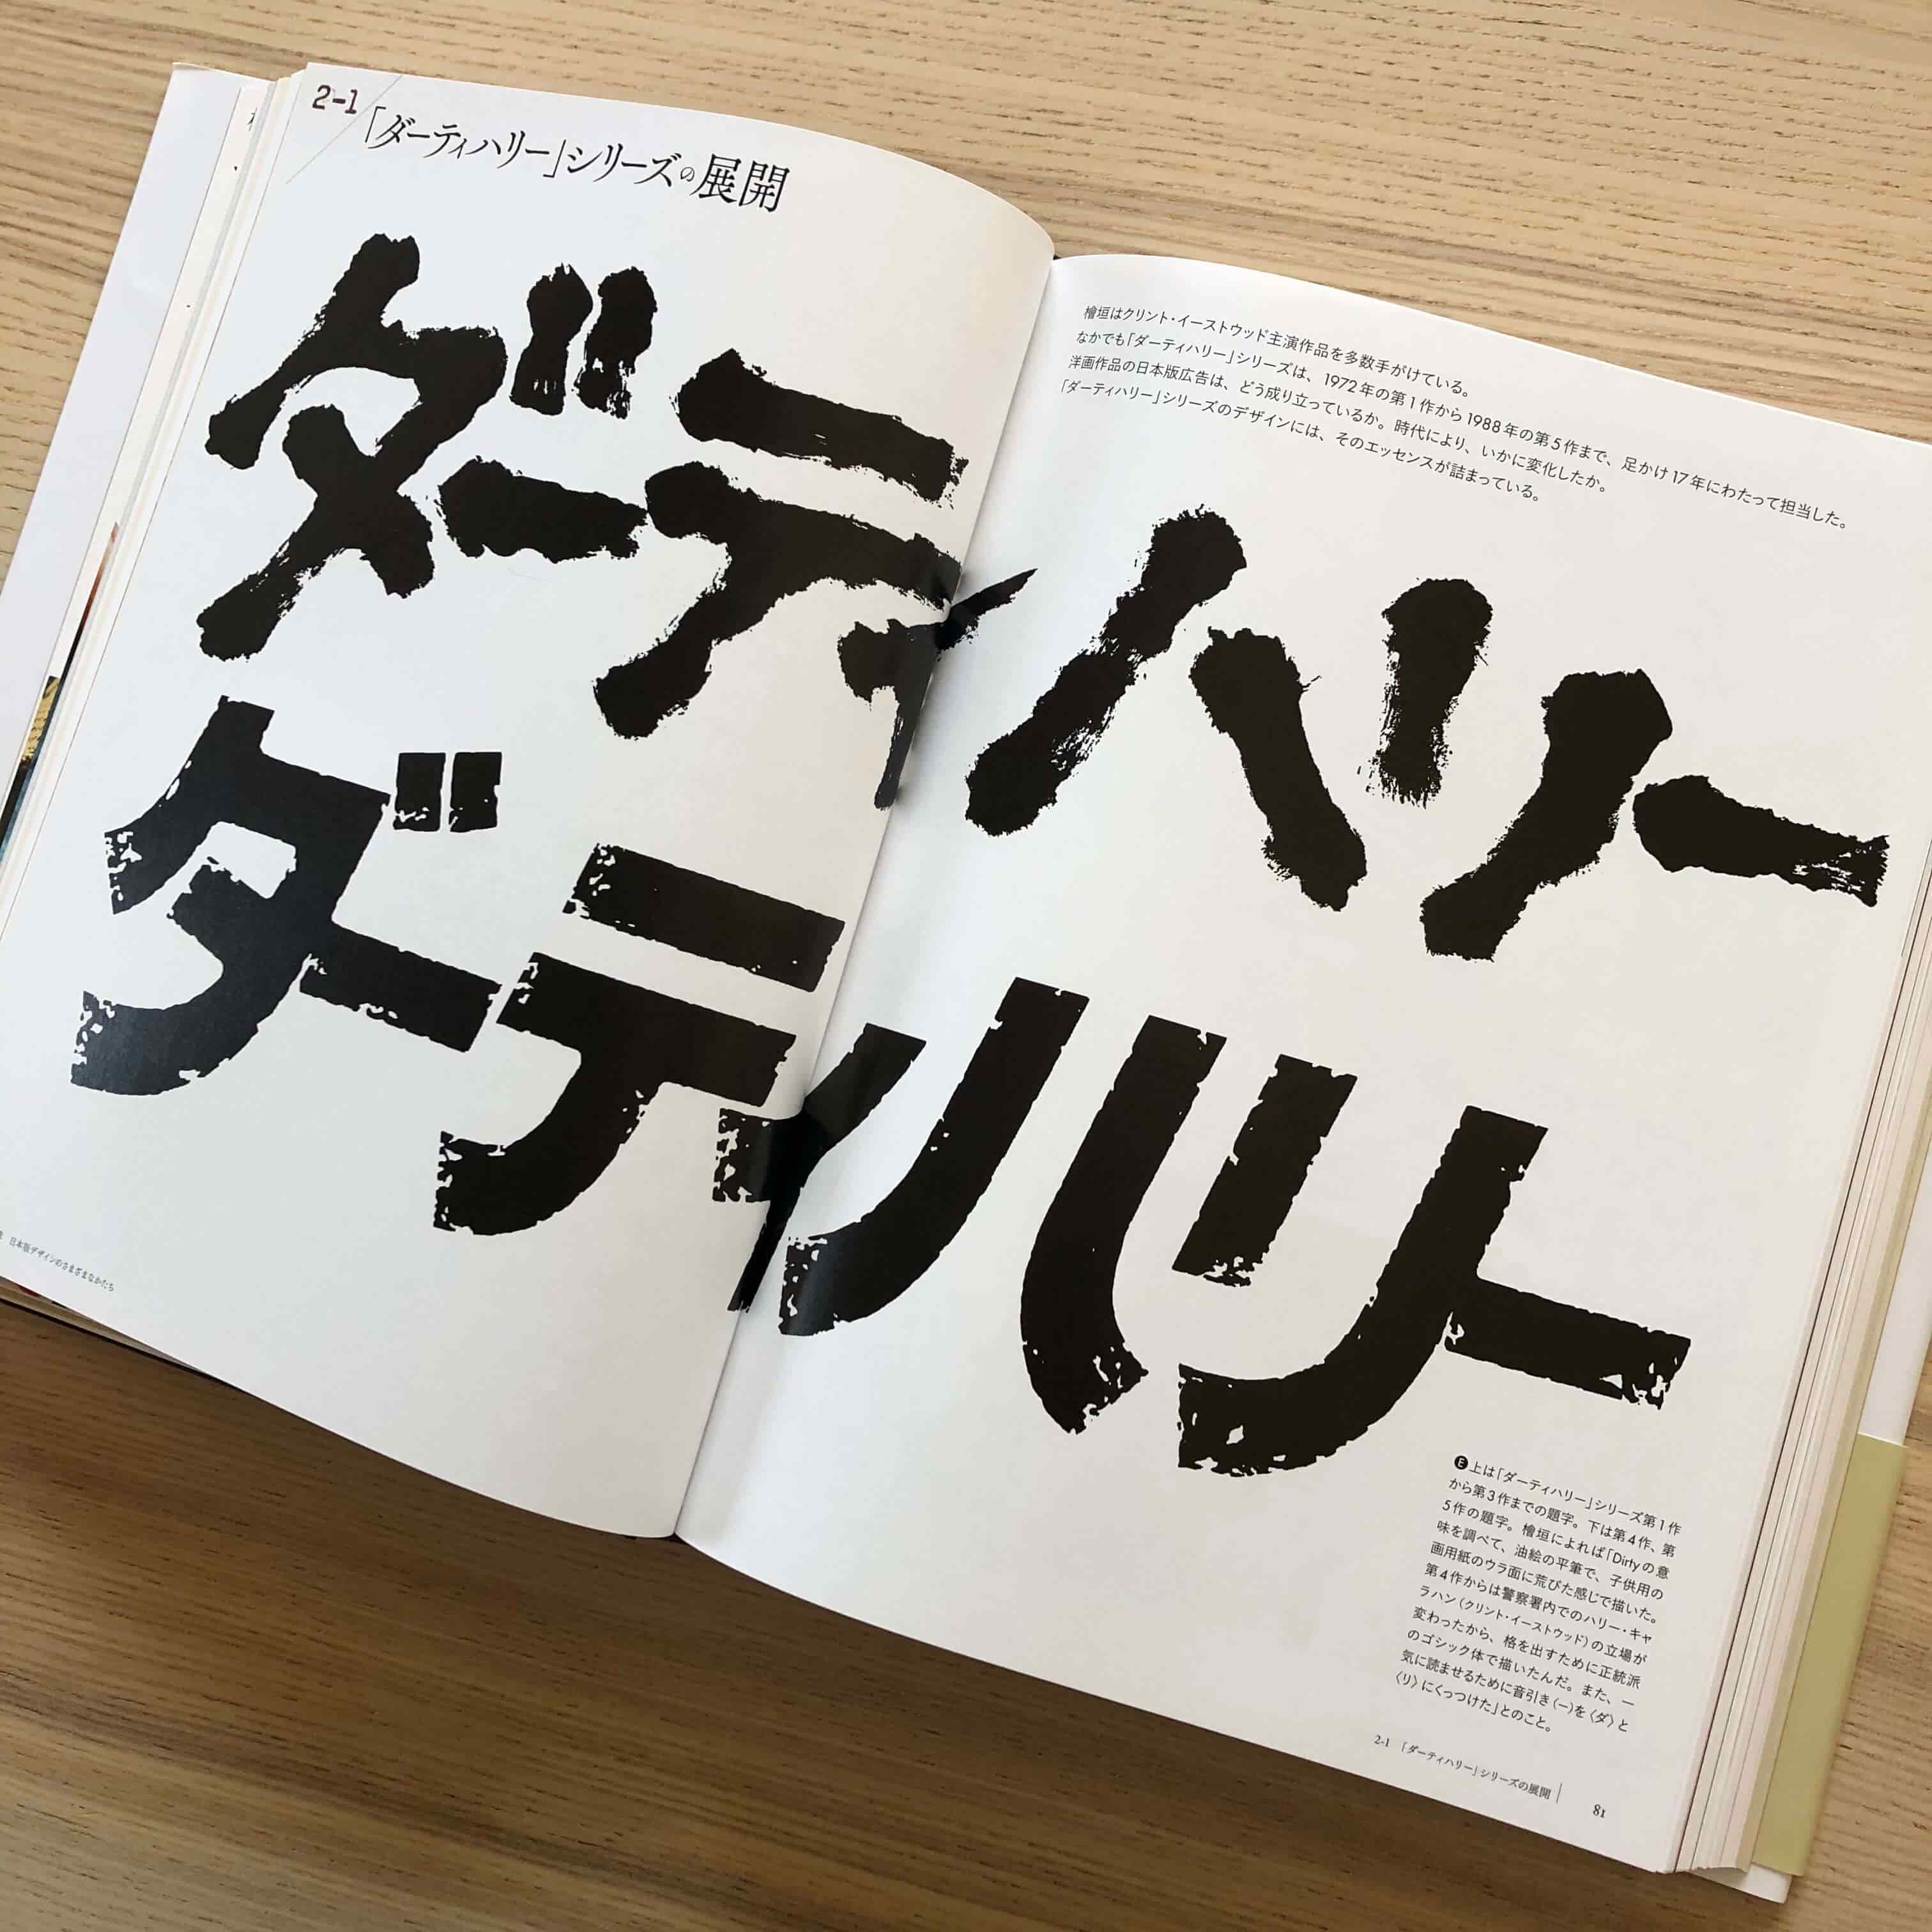 2-1
「ダーティハリー」シリーズの展開
ダーティハリー
ダーティハリー
日本版デザインのさまざまなかたち
檜垣はクリント・イーストウッド主演作品を多数手がけている。
なかでも「ダーティハリー」シリーズは、1972年の第1作から1988年の第5作まで、足かけ17年にわたって担当した。
洋画作品の日本版広告は、どう成り立っているか。時代により、いかに変化したか。
「ダーティハリー」シリーズのデザインには、そのエッセンスが詰まっている。
E 上は「ダーティハリー」シリーズ第1作
から第3作までの題字。下は第4作、第
5作の題字。檜垣によれば「Dirtyの意
味を調べて、油絵の平筆で、子供用の
画用紙のウラ面に荒びた感じで描いた。
第4作からは警察署内でのハリー・キャ
ラハン（クリント・イーストウッド）の立場が
変わったから、格を出すために正統派
のゴシック体で描いたんだ。また、一
気に読ませるために音引き〈ー〉を〈ダ〉と
〈リ〉にくっつけた」とのこと。
2-1 「ダーティハリー」シリーズの展開
81